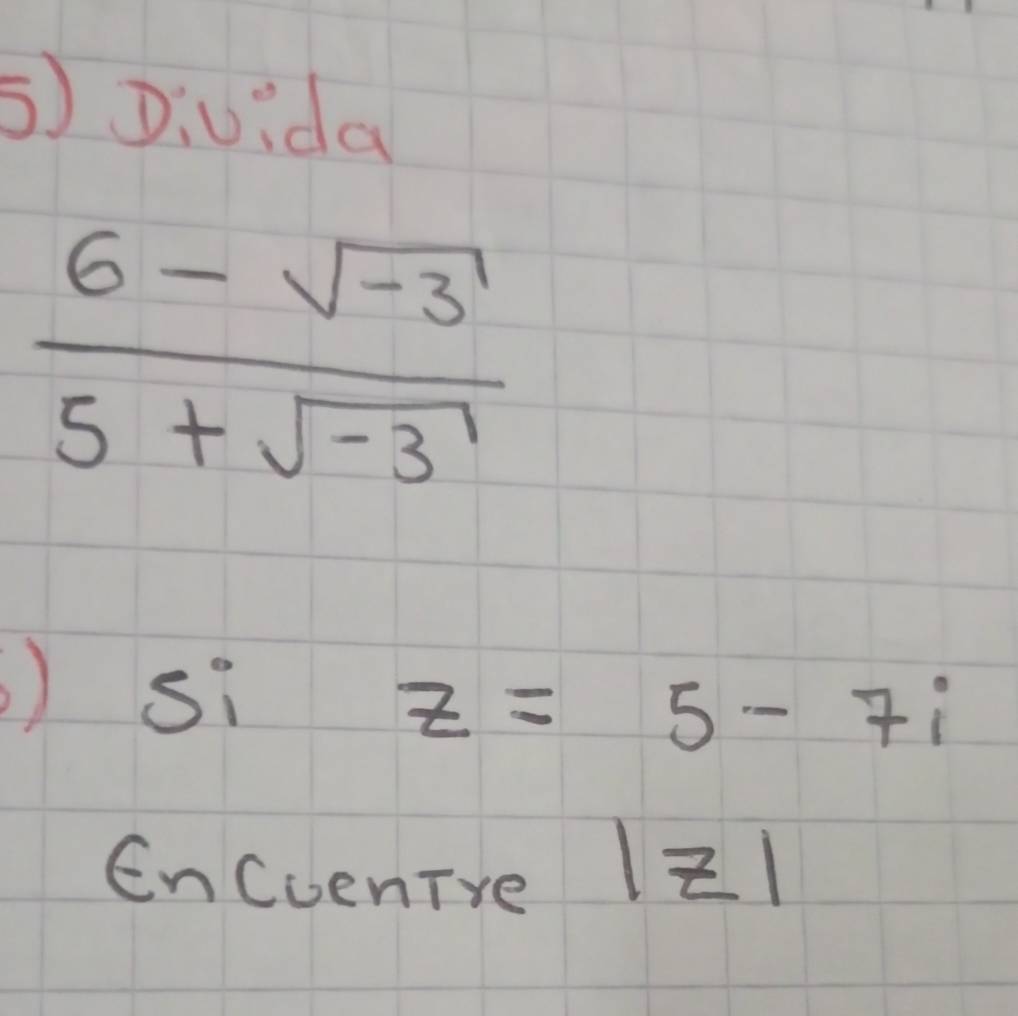 5) Divida
6 - √-3
5 + √-3
) Si z = 5 - 7i
Encuentre |z|